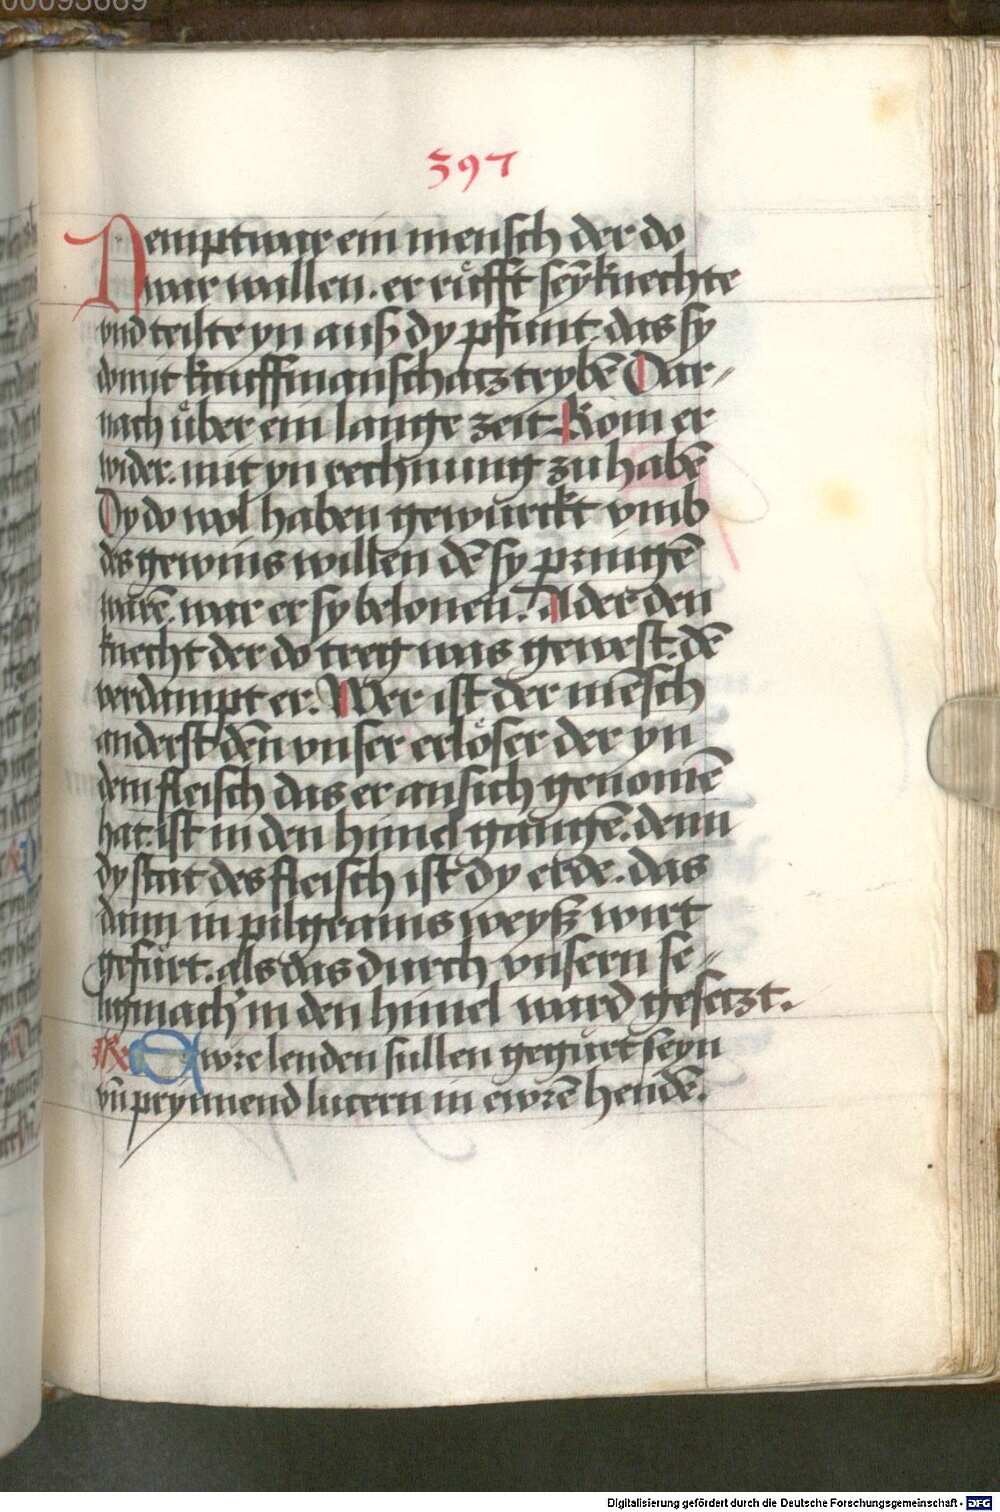 00093889
397
Nempt war ein mensch der do
war wallen. er rufft seỹ knechte
vnd teilte yn auß dy pfunt. das sy
do mit kauffmanschacz trybẽ Dar-
nach vͤber ein lange zeit. Kom er
wider. mit yn rechnung zu habẽ
Dy do wol haben gewurckt vmb
des gewins willen dẽ sy pringẽ
warẽ. war er sy belonen. Aber den
knecht der do treg was gewest. dẽ
verdampt er. Wer ist der mẽsch
anderst dẽn vnser erlöser der yn
dem fleisch das er an sich genomẽ
hat. ist in den himel gangẽ. denn
dy stat des fleisch ist dy erde. das
dann in pilgrams weyß wirt
gefurt. als das durch vnsern se-
ligmacher in den himel ward geseczt.
R Ewre lenden sullen gegurt seyn
vñ prynnend lucern in ewrẽ hendẽ.
Digitalisierung gefördert durch die Deutsche Forschungsgemeinschaft - DFG